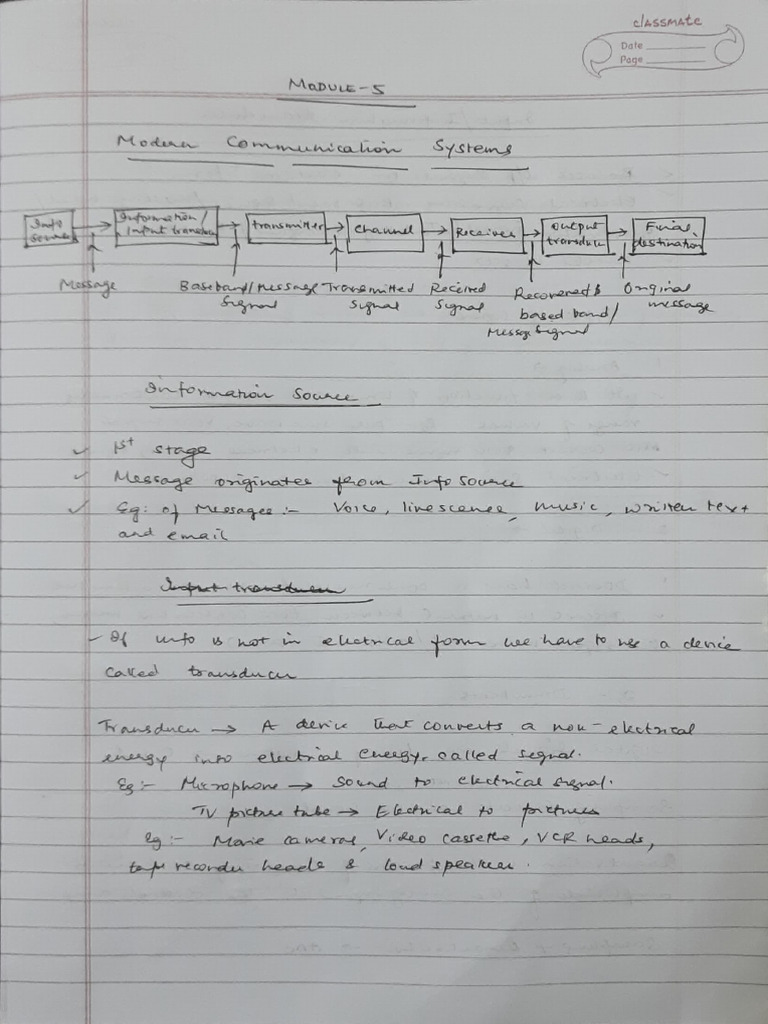 classmate
Date
Page
MODULE-5
Modern Communication Systems
Info source
Information/ Input transducer
transmitter
channel
Receiver
output transducer
Final destination
Message
Baseband/Message Signal
Transmitted Signal
Received Signal
Recovered based band/ Message Signal
Original message
Information Source
✓ 1st stage
✓ Message originates from Info source
✓ Eg: of Messages :- Voice, live scence, music, written text
and email
Input transducer
- If info is not in electrical form we have to use a device
called transducer
Transducer → A device that converts a non-electrical
energy into electrical energy, called signal.
Eg:- Microphone → Sound to electrical signal.
TV picture tube → Electrical to pictures
eg:- Movie cameras, Video cassette, VCR heads,
tape recorder heads & loud speaker.